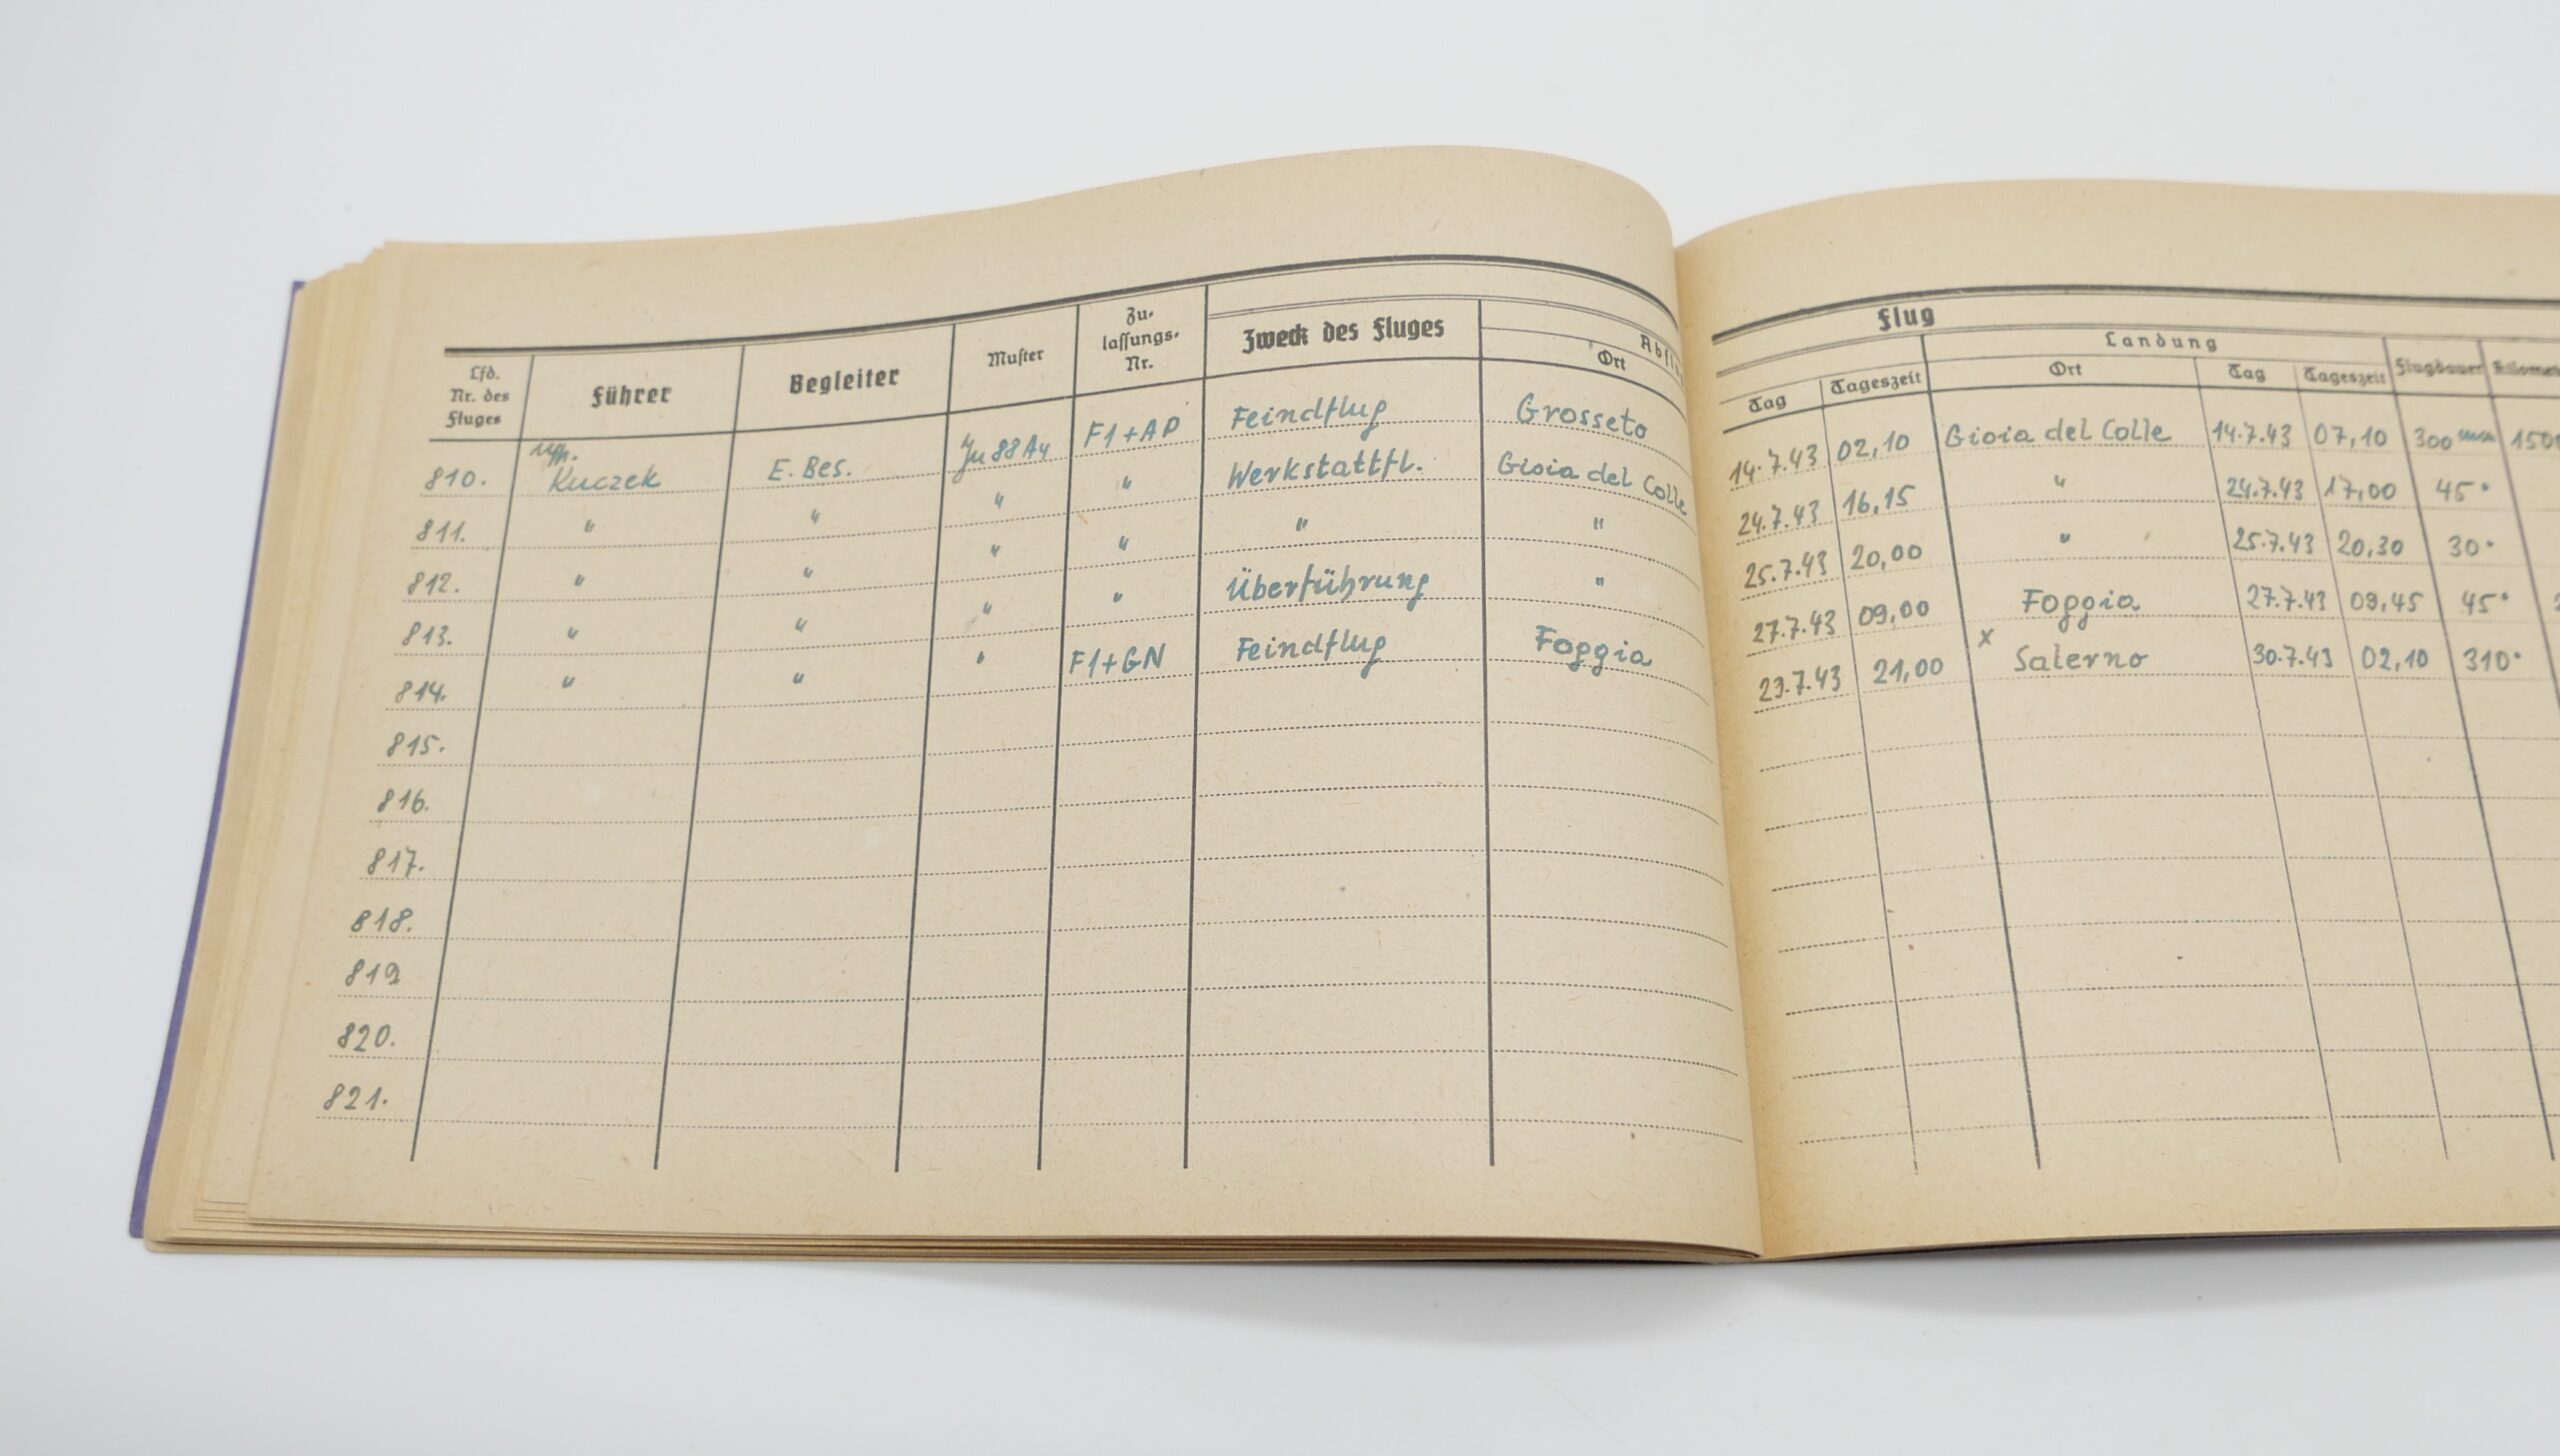 Lfd. Nr. des Fluges Führer Begleiter Muster Zulassungs-Nr. Zweck des Fluges Ort
Flug
Landung
Tag Tageszeit Ort Tag Tageszeit Flugdauer
810. Uffz. Kuczek E. Bes. Ju 88 A4 F1+AP Feindflug Grosseto 14.7.43 02,10 Gioia del Colle 14.7.43 07,10 300 min
811. " " " " Werkstattfl. Gioia del Colle 24.7.43 16,15 " 24.7.43 17,00 45"
812. " " " " " " 25.7.43 20,00 " 25.7.43 20,30 30"
813. " " " " Überführung " 27.7.43 09,00 Foggia 27.7.43 09,45 45"
814. " " " F1+GN Feindflug Foggia 29.7.43 21,00 x Salerno 30.7.43 02,10 310"
815.
816.
817.
818.
819
820.
821.